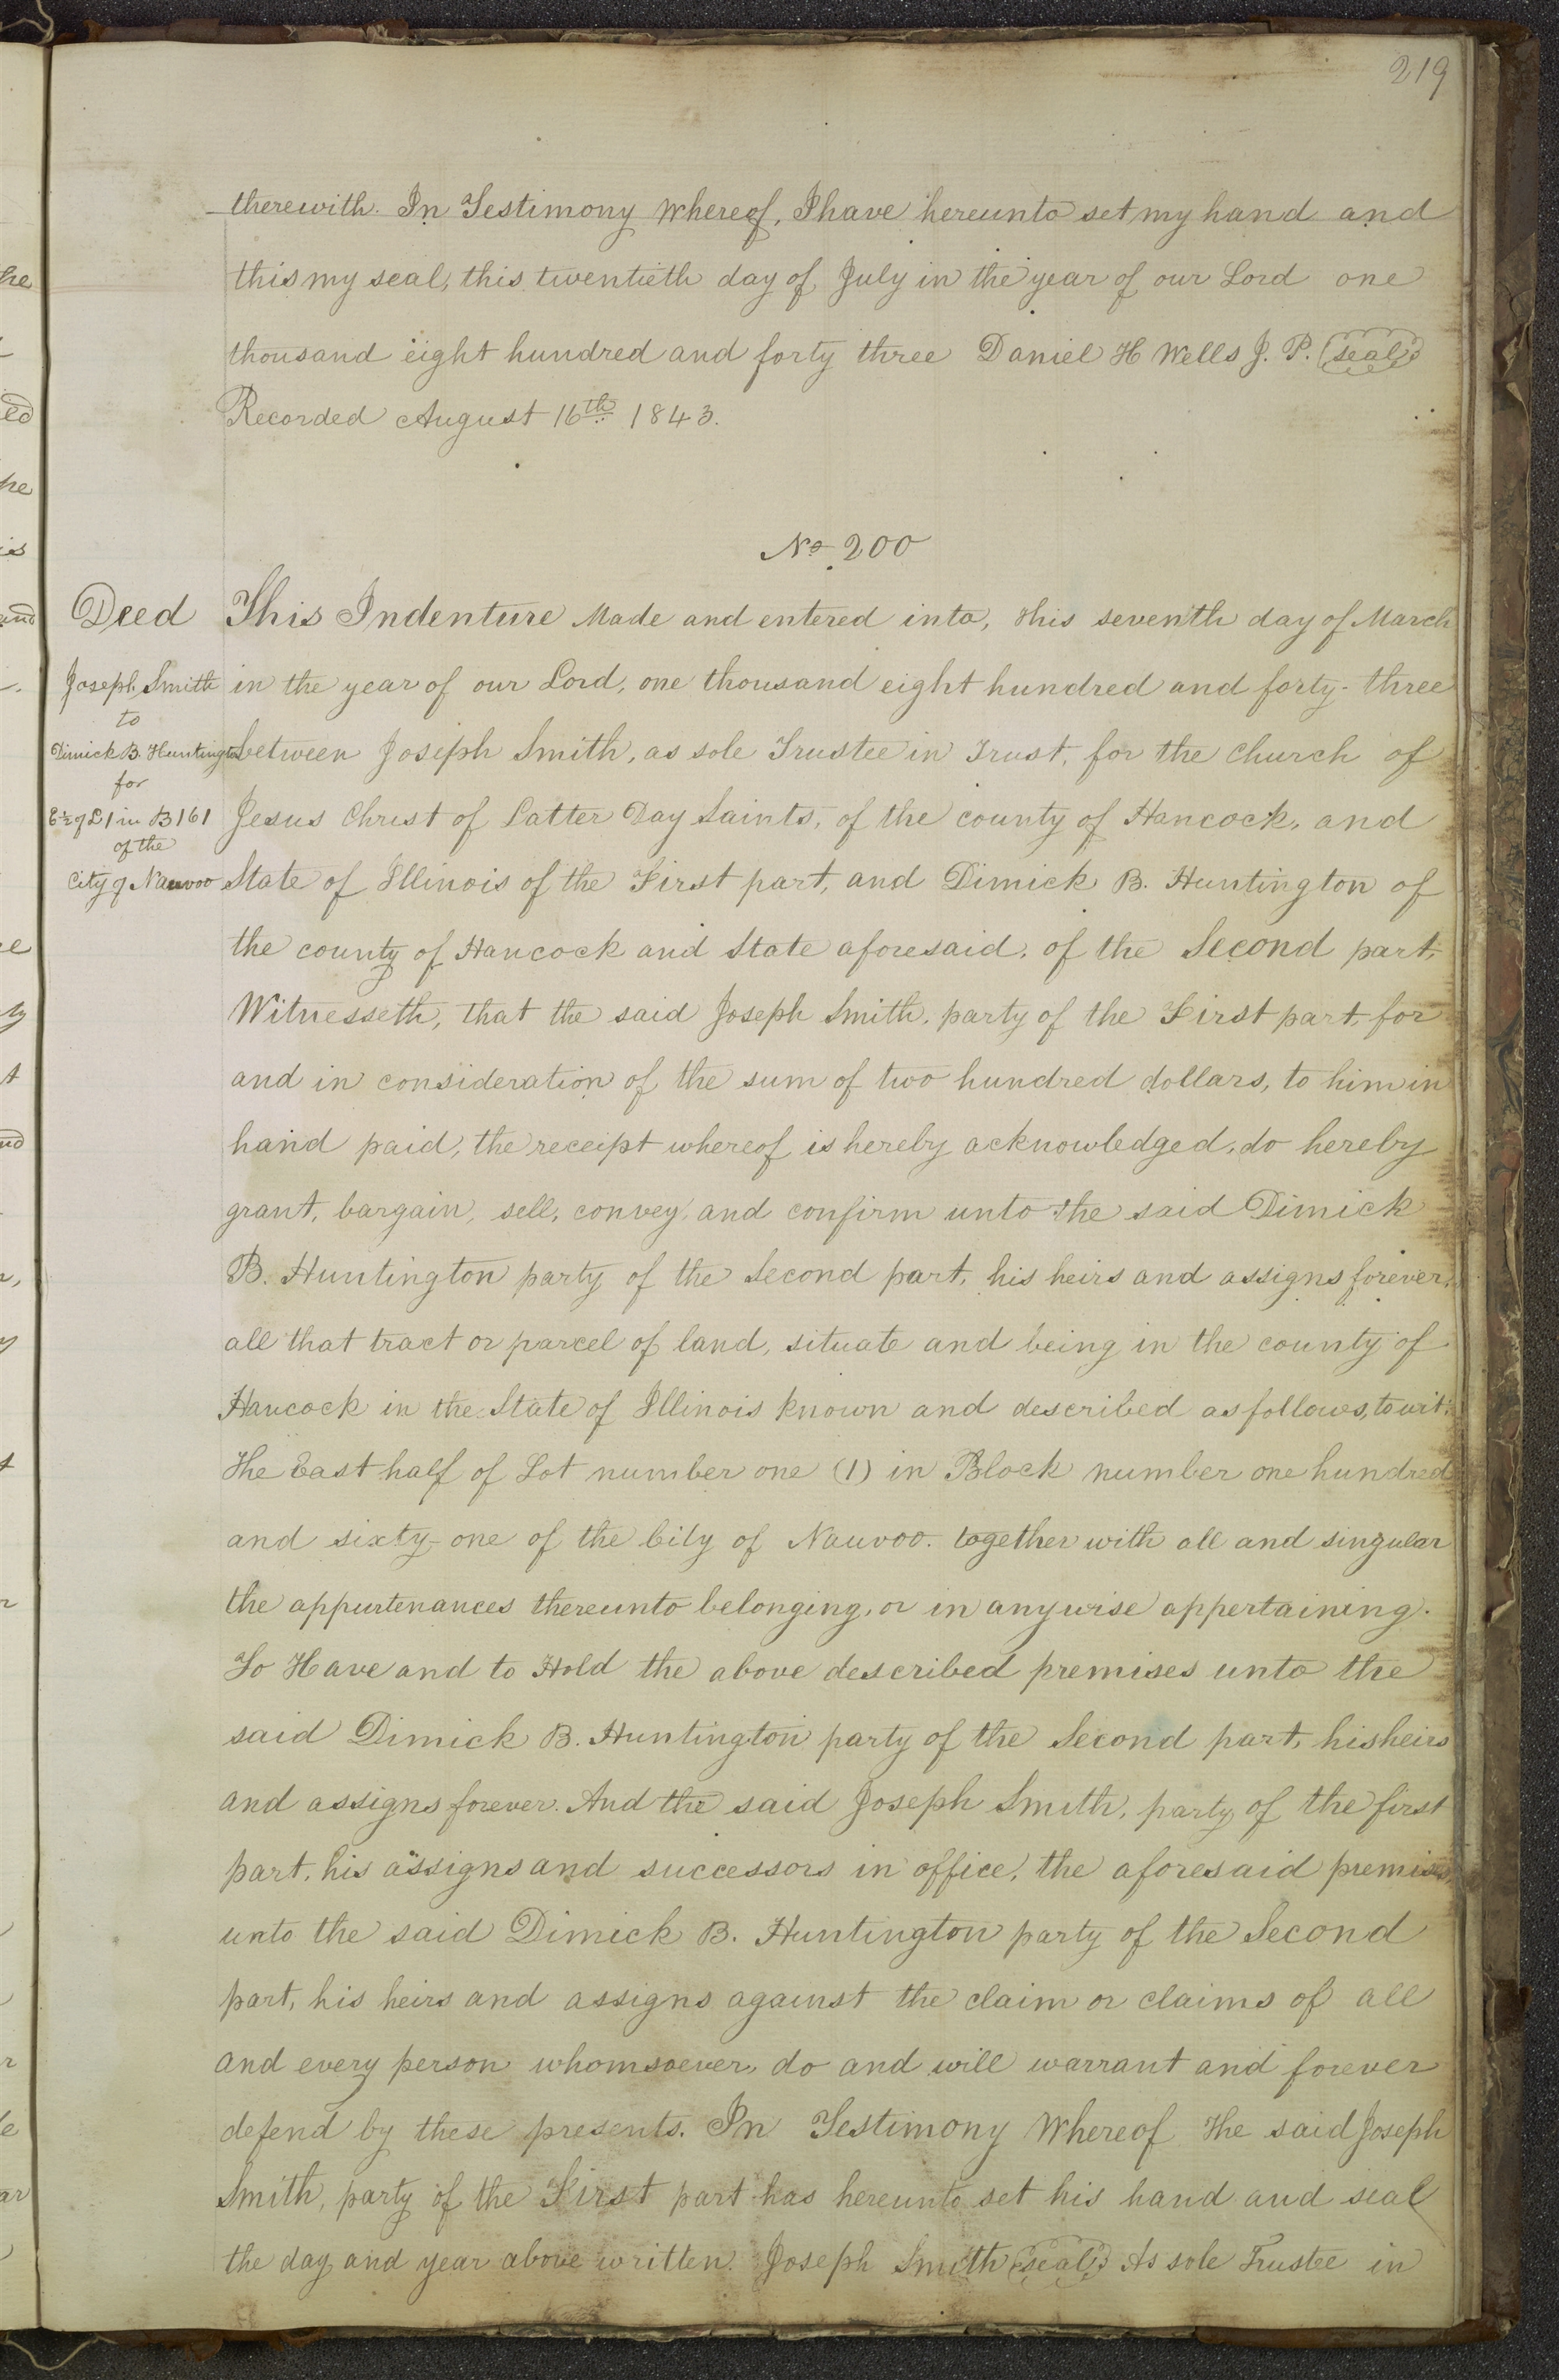 219
therewith. In Testimony Whereof, I have hereunto set my hand and
this my seal, this twentieth day of July in the year of our Lord one
thousand eight hundred and forty three Daniel H Wells J. P. (seal)
Recorded August 16th 1843.
No 200
Deed
Joseph Smith
to
Dimick B. Huntington
for
E ½ of L 1 in B 161
of the
City of Nauvoo
This Indenture Made and entered into, this seventh day of March
in the year of our Lord, one thousand eight hundred and forty-three
between Joseph Smith, as sole Trustee in Trust, for the Church of
Jesus Christ of Latter Day Saints, of the county of Hancock, and
State of Illinois of the First part, and Dimick B. Huntington of
the county of Hancock and State aforesaid, of the Second part,
Witnesseth, that the said Joseph Smith, party of the First part, for
and in consideration of the sum of two hundred dollars, to him in
hand paid, the receipt whereof is hereby acknowledged, do hereby
grant, bargain, sell, convey, and confirm unto the said Dimick
B. Huntington party of the Second part, his heirs and assigns forever,
all that tract or parcel of land, situate and being in the county of
Hancock in the State of Illinois known and described as follows, to wit:
The East half of Lot number one (1) in Block number one hundred
and sixty-one of the City of Nauvoo. together with all and singular
the appurtenances thereunto belonging, or in anywise appertaining.
To Have and to Hold the above described premises unto the
said Dimick B. Huntington party of the Second part, his heirs
and assigns forever. And the said Joseph Smith, party of the first
part, his assigns and successors in office, the aforesaid premises
unto the said Dimick B. Huntington party of the Second
part, his heirs and assigns against the claim or claims of all
and every person whomsoever, do and will warrant and forever
defend by these presents. In Testimony Whereof The said Joseph
Smith, party of the First part has hereunto set his hand and seal
the day and year above written. Joseph Smith (seal) As sole Trustee in